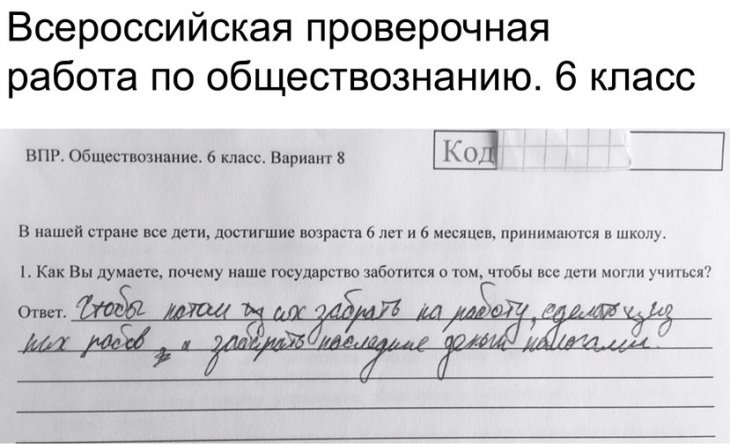 Всероссийская проверочная
работа по обществознанию. 6 класс
ВПР. Обществознание. 6 класс. Вариант 8
Код
В нашей стране все дети, достигшие возраста 6 лет и 6 месяцев, принимаются в школу.
1. Как Вы думаете, почему наше государство заботится о том, чтобы все дети могли учиться?
Ответ. Чтобы потом их забрать на работу, сделать из
них рабов, и забирать последние деньги налогами.